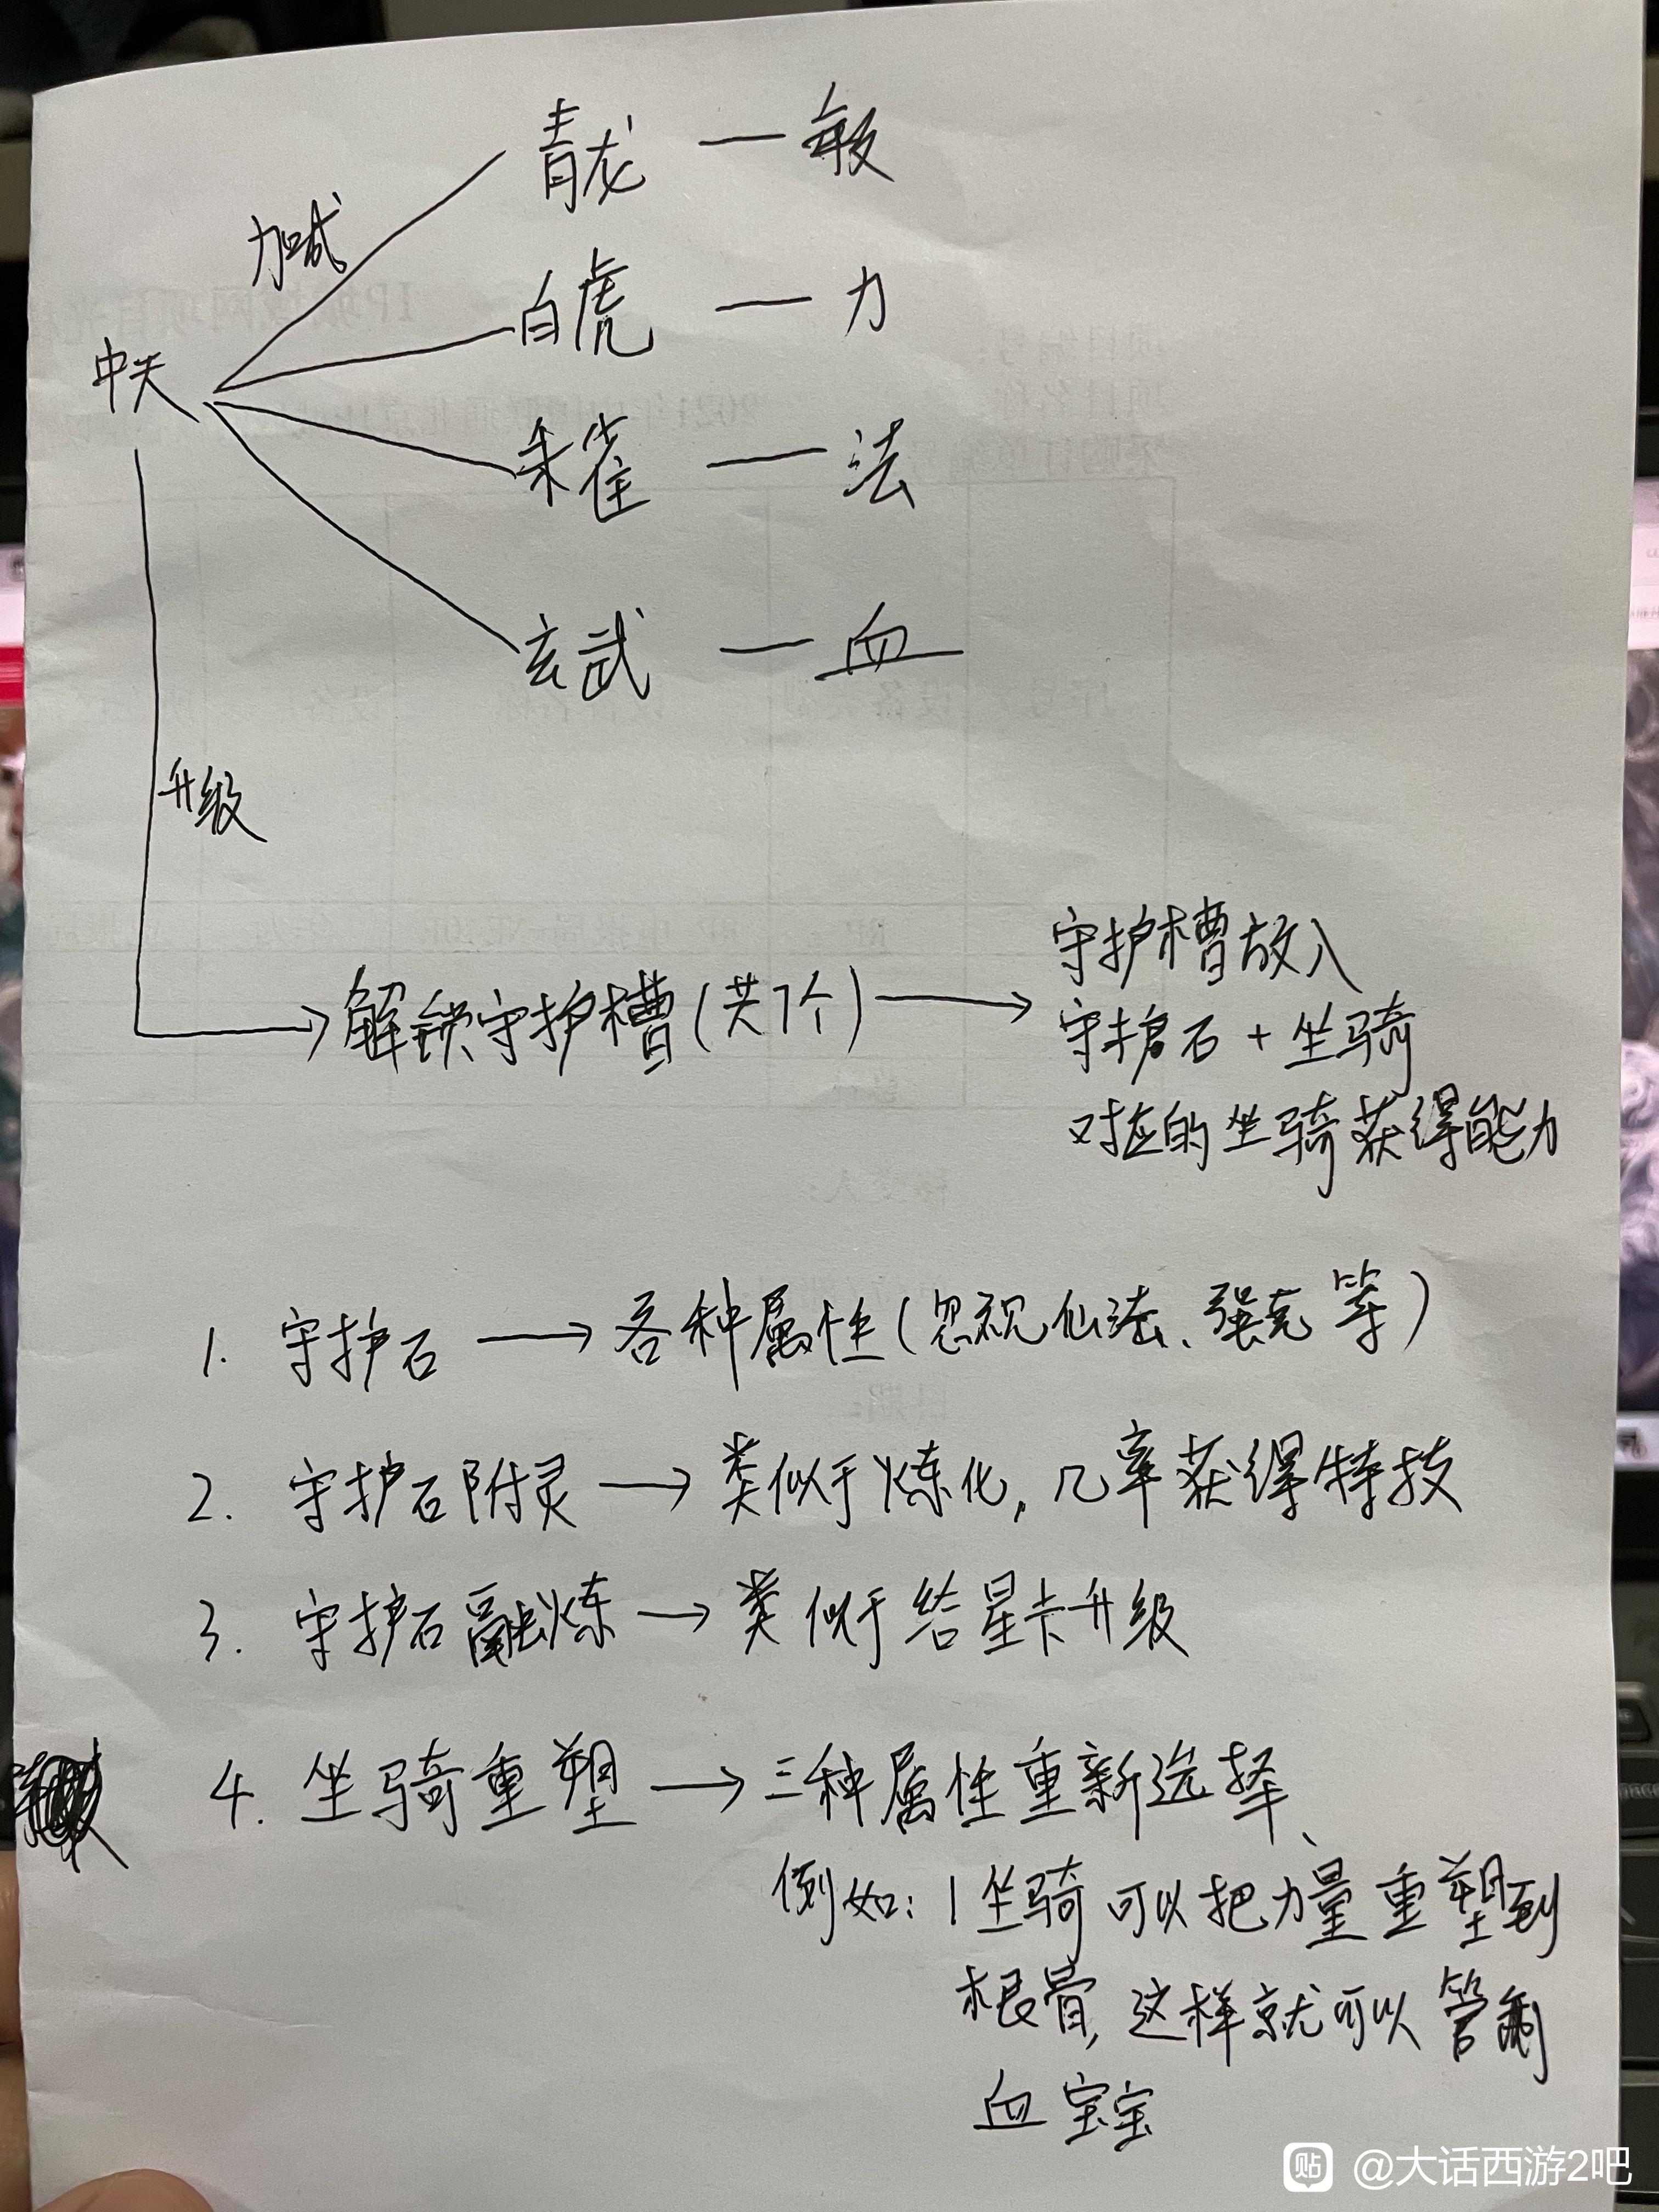 青龙 — 敏
加减
白虎 — 力
中天
朱雀 — 法
玄武 — 血
升级
解锁守护槽(共7个) →
守护槽放入
守护石 + 坐骑
对应的坐骑获得能力
1. 守护石 → 各种属性(忽视仙法、强克等)
2. 守护石附灵 → 类似于炼化, 几率获得特技
3. 守护石融炼 → 类似于给星卡升级
4. 坐骑重塑 → 三种属性重新选择、
例如: 1坐骑可以把力量重塑到
根骨, 这样就可以管制
血宝宝
贴 @大话西游2吧